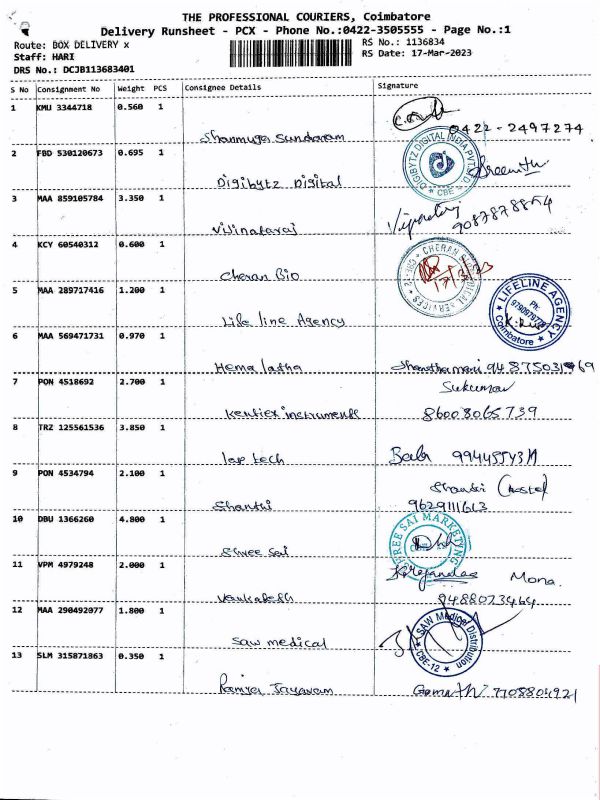 THE PROFESSIONAL COURIERS, Coimbatore
Delivery Runsheet - PCX - Phone No.:0422-3505555 - Page No.:1
Route: BOX DELIVERY x
RS No.: 1136834
Staff: HARI
RS Date: 17-Mar-2023
DRS No.: DCJB113683401
S No Consignment No Weight PCS Consignee Details Signature
1 KMU 3344718 0.560 1
Shanmuga Sundaram 0422-2497274
2 FBD 530120673 0.695 1
DIGIBYTZ DIGITAL INDIA PVT. LTD. CBE
Digibytz Digital Sreenith
3 MAA 859105784 3.350 1
Vijinataraj 9087878854
4 KCY 60540312 0.600 1
CHERAN
Cheran Bio 17/3/23
5 MAA 289717416 1.200 1
LIFELINE AGENCY Ph: Coimbatore
Life line Agency
6 MAA 569471731 0.970 1
Hema latha
7 PON 4518692 2.700 1
Sukumar
instruments 86008065739
8 TRZ 125561536 3.850 1
tech
9 PON 4534794 2.100 1
Shanthi
10 DBU 1366260 4.800 1
SAI MARKETING
Shree Sai
11 VPM 4979248 2.000 1
Mona.
Venkatesh 9488073464
12 MAA 290492077 1.800 1
SAW Medical Distribution CBE-12
Saw medical
13 SLM 315871863 0.350 1
Jayaram 7708804921